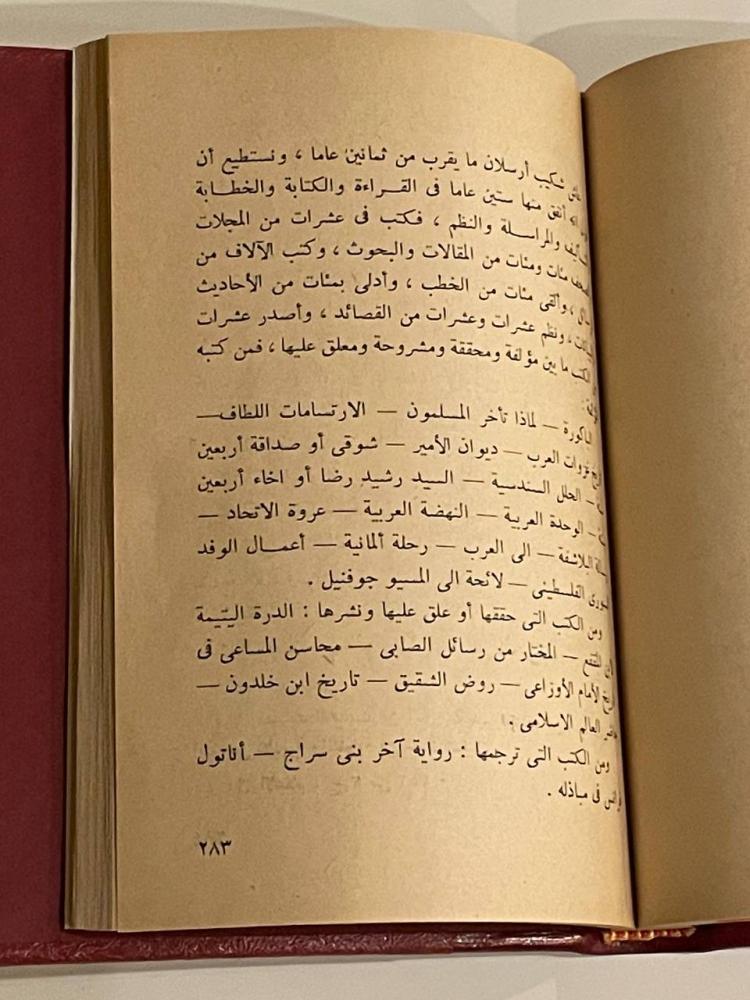 عاش شكيب أرسلان ما يقرب من ثمانين عاما ، ونستطيع أن
انه أنفق منها ستين عاما فى القـــراءة والكتابة والخطـــابة
والمراســـلة والنظم ، فكتب فى عشرات من المجلات
مئات ومئات من المقالات والبحوث ، وكتب الآلاف من
، وألقى مئات من الخطب ، وأدلى بمئات من الأحاديث
، ونظم عشرات وعشرات من القصائد ، وأصدر عشرات
الكتب ما بين مؤلفة ومحققة ومشروحة ومعلق عليها ، فمن كتبه
الباكورة — لماذا تأخر المسلمون — الارتسامات اللطاف—
غزوات العرب — ديوان الأمير — شوقى أو صداقة أربعين
— الحلل السندسية — السيد رشيد رضا أو اخاء أربعين
— الوحدة العربية — النهضة العربية — عروة الاتحاد —
البلاشفة — الى العرب — رحلة ألمانية — أعمــال الوفد
الفلسطينى — لائحة الى المسيو جوفنيل .
ومن الكتب التى حققها أو علق عليها ونشرها : الدرة اليتيمة
المقفع — المختار من رسائل الصابى — محاسن المساعى فى
الأمام الأوزاعى — روض الشقيق — تاريخ ابن خلدون —
العالم الاسلامى .
ومن الكتب التى ترجمها : رواية آخر بنى سراج — أناتول
فى مباذله .
٢٨٣